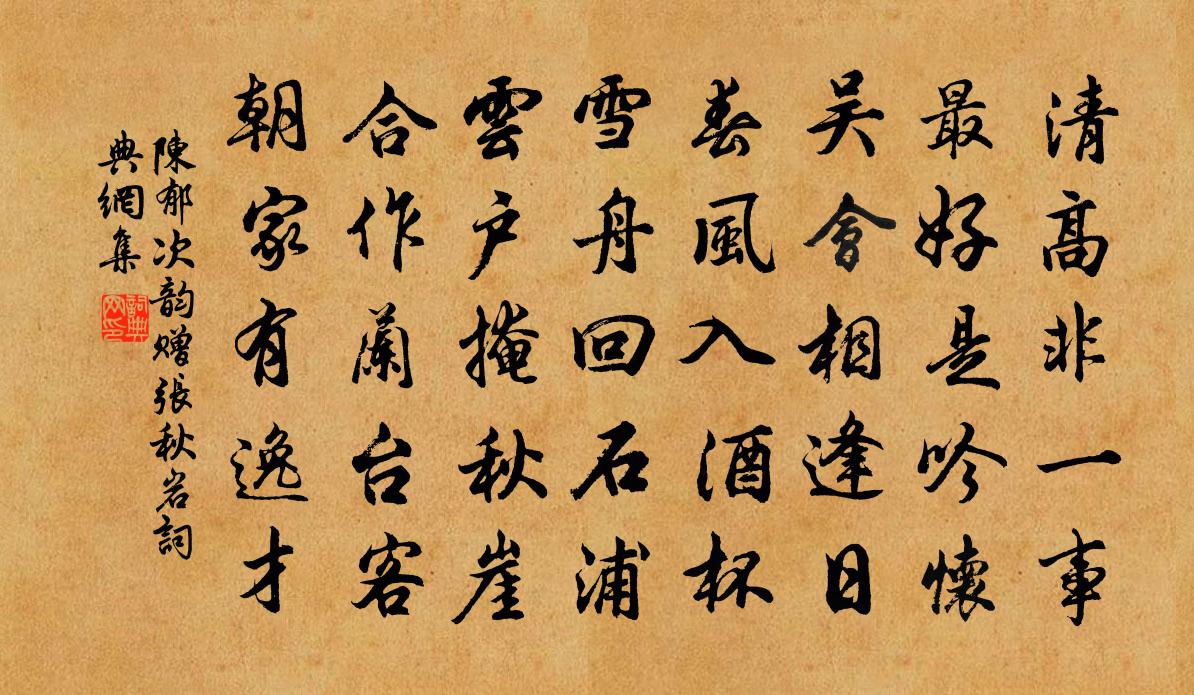 清高非一事
最好是吟懷
吴會相逢日
春風入酒杯
雪舟回石浦
雲户掩秋崖
合作蘭台客
朝家有逸才
陳郁次韵贈張秋岩詞
典網集
詞典网印